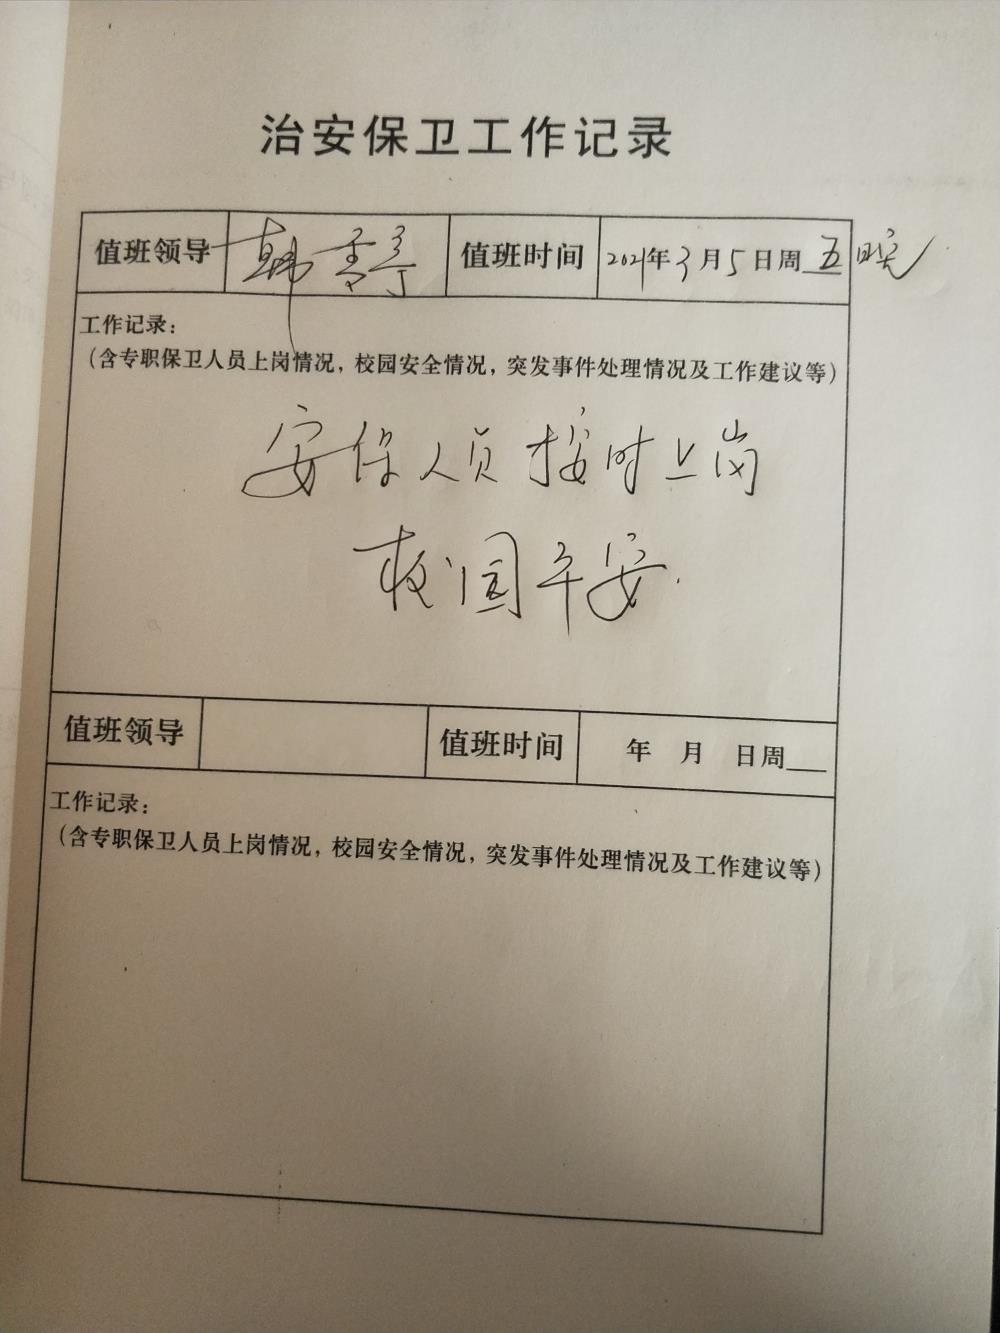 治安保卫工作记录
值班领导 韩 值班时间 2021年3月5日周五 晚
工作记录：
（含专职保卫人员上岗情况，校园安全情况，突发事件处理情况及工作建议等）
安保人员按时上岗
校园平安.
值班领导 值班时间 年 月 日周
工作记录：
（含专职保卫人员上岗情况，校园安全情况，突发事件处理情况及工作建议等）